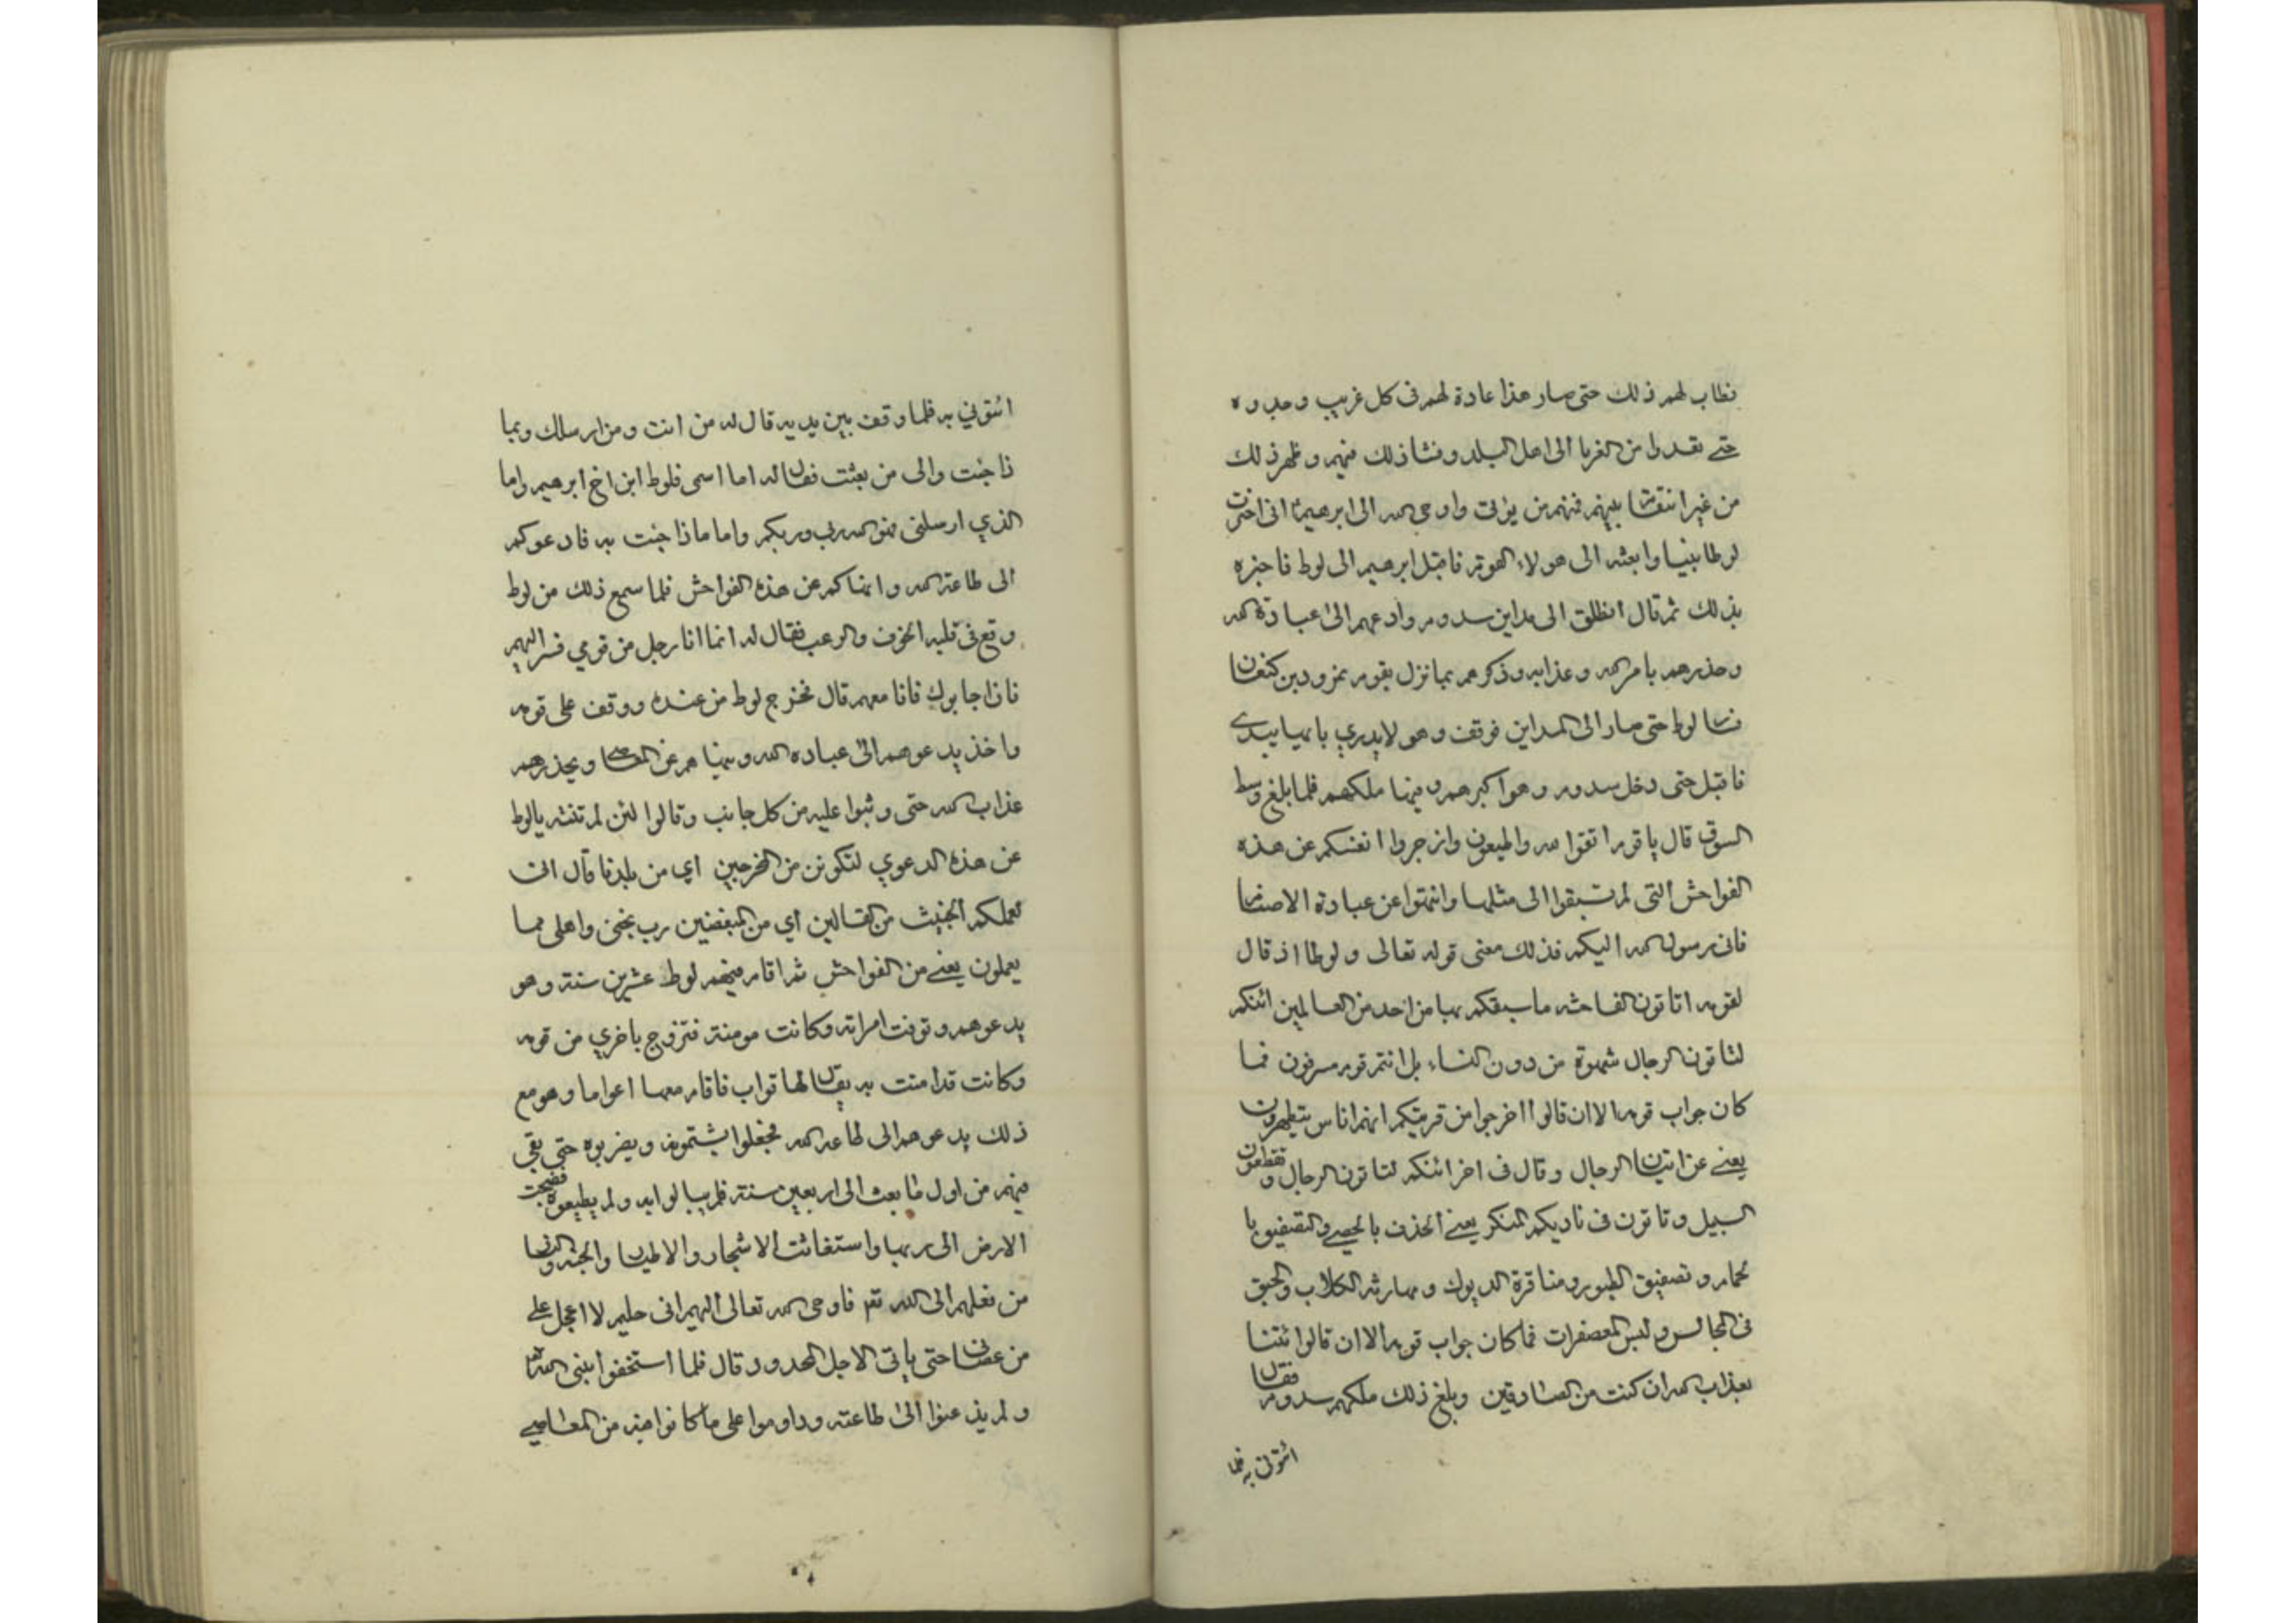 فطاب لهم ذلك حتى صار هذا عادة لهم فى كل غريب وجدوه
حتے تعدوا من الغربا الى اهل البلد وفشا ذلك فيهم وظهر ذلك
من غير انتقاش بينهم فمنهم من يؤتى واوحى الله الى ابرهيم انى اخترت
لوطا نبيا وابعثه الى هولاء القوم فاقبل ابرهيم الى لوط فاخبره
بذلك ثم قال انطلق الى مداين سدوم وادعهم الى عبادة الله
وحذرهم بامر الله وعذابه وذكرهم بما نزل بقوم نمرود بن كنعان
فسار لوط حتى صار الى المداين فوقف وهو لا يدري بايها يبدي
فاقبل حتى دخل سدوم وهو اكبرهم وفيها ملكهم فلما بلغ وسط
السوق قال يا قوم اتقوا الله واطيعون وازجروا انفسكم عن هذه
الفواحش التى لم تسبقوا الى مثلها وانتهوا عن عبادة الاصنام
فانى رسول الله اليكم فذلك معنى قوله تعالى ولوطا اذ قال
لقومه اتاتون الفاحشه ما سبقكم بها من احد من العالمين ائنكم
لتاتون الرجال شهوة من دون النساء بل انتم قوم مسرفون فما
كان جواب قومه الا ان قالوا اخرجوا من قريتكم انهم اناس يتطهرون
يعنے عن اتيان الرجال وقال فى اخر ائنكم لتاتون الرجال وتقطعون
السبيل وتاتون فى ناديكم المنكر يعنے الخذف بالحصے والتصفيق با
لحمام وتصفيق الطيور ومناقرة الديوك ومهارشة الكلاب والحبق
فى المجالس ولبس المعصفرات فما كان جواب قومه الا ان قالوا ئتنا
بعذاب الله ان كنت من الصادقين وبلغ ذلك ملكهم سدوم فقال
ائتونى به فلما
ائتوني به فلما وقف بين يديه قال له من انت ومن ارسلك وبما
ذا جئت والى من بعثت فقال له اما اسمى فلوط ابن اخ ابرهيم واما
الذي ارسلنى فهو الله ربى وربكم واما ماذا جئت به فادعوكم
الى طاعة الله وانهاكم عن هذه الفواحش فلما سمع ذلك من لوط
وقع فى قلبه الخوف والرعب فقال له انما انا رجل من قومي فسر اليهم
فاذا اجابوك فانا معهم قال فخرج لوط من عنده ووقف على قومه
واخذ يدعوهم الى عباده الله وينهاهم عن المعاصى ويحذرهم
عذاب الله حتى وثبوا عليه من كل جانب وقالوا لئن لم تنته يالوط
عن هذه الدعوي لتكونن من المخرجين اي من بلدنا قال انى
لعملكم الخبيث من القالين اي من المبغضين رب نجنى واهلى مما
يعملون يعنے من الفواحش ثم اقام فيهم لوط عشرين سنة وهو
يدعوهم وتوفت امراته وكانت مومنة فتزوج باخري من قومه
وكانت قد امنت به يقال لها قواب فاقام معها اعواما وهو مع
ذلك يدعوهم الى طاعه الله فجعلوا يشتمونه ويضربوه حتى بقي
فيهم من اول ما بعث الى اربعين سنة فلم يبالوا به ولم يطيعوه فضجت
الارض الى ربها واستغاثت الاشجار والاطيار والجنه والنار
من فعلهم الى الله تع فاوحى الله تعالى اليهم انى حليم لا اعجل علے
من عصانى حتى ياتى الاجل المحدود قال فلما استخفوا بنبى الله
ولم يذعنوا الى طاعته وداوموا على ما كانوا فيه من المعاصے